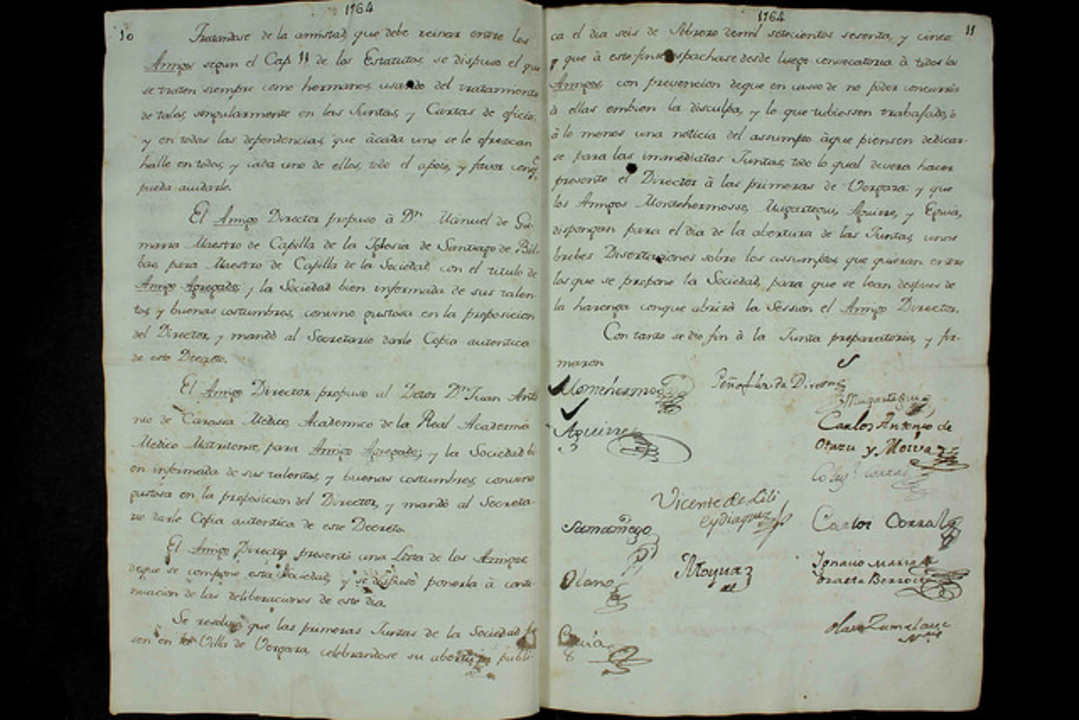 1764
10
Tratandose de la amistad, que debe reinar entre los
Amigos segun el Cap. 11 de los Estatutos, se dispuso el que
se traten siempre como hermanos, usando del tratamiento
de tales, singularmente en las Juntas, y Cartas de oficio;
y en todas las dependencias, que àcada uno se le ofrescan
halle en todos, y cada uno de ellos, todo el apoio, y favor con q.
pueda aiudarle.
El Amigo Director propuso à Dn. Manuel de Ga-
maria Maestro de Capilla de la Iglesia de Santiago de Bil-
bao, para Maestro de Capilla de la Sociedad con el titulo de
Amigo Agregado; y la Sociedad bien informada de sus talen-
tos, y buenas costumbres, convino gustosa en la proposicion
del Director, y mandó al Secretario darle Copia autentica
de este Decreto.
El Amigo Director propuso al Dotor Dn. Juan Anto
nio de Carasa Medico, Academico de la Real Academia
Medico Matritense, para Amigo Agregado; y la Sociedad bi
en informada de sus talentos, y buenas costumbres, convino
gustosa en la proposicion del Director, y mandó al Secreta-
rio darle Copia autentica de este Decreto.
El Amigo Director presentó una Lista de los Amigos,
deque se compone esta Sociedad, y se dispuso ponerla à conti-
nuacion de las deliberaciones de este dia.
Se resolvió que las primeras Juntas de la Sociedad fue
sen en la Villa de Vergara, celebrandose su abertura publi-
1764
11
ca el dia seis de Febrero demil setecientos sesenta, y cinco
y que à este fin se despachase desde luego convocatoria à todos los
Amigos con prevencion deque en caso de no poder concurrir
à ellas embien la disculpa, y lo que tubiessen trabajado, ò
à lo menos una noticia del assumpto àque piensen dedicar-
se para las immediatas Juntas, todo lo qual devera hacer
presente el Director à las primeras de Vergara: y que
los Amigos Montehermosso, Mugartegui, Aguirre, y Eguia,
dispongan para el dia de la abertura de las Juntas, unas
brebes Disertaciones sobre los assumptos, que quieran entre
los que se propone la Sociedad, para que se lean despues de
la harenga conque abrirà la Session el Amigo Director.
Con tanto se dio fin à la Junta preparatoria, y fir-
maron
Montehermoso
Peñaflorida Director
Mugartegui
Aguirre
Carlos Antonio de
Otazu y Moyua
Corral
Vicente de Lili
Ydiaquez
Samaniego
Carlos Corral
Olano
Moyua
Ignacio Maria
Berroeta
Eguia
Olaso Zumalave